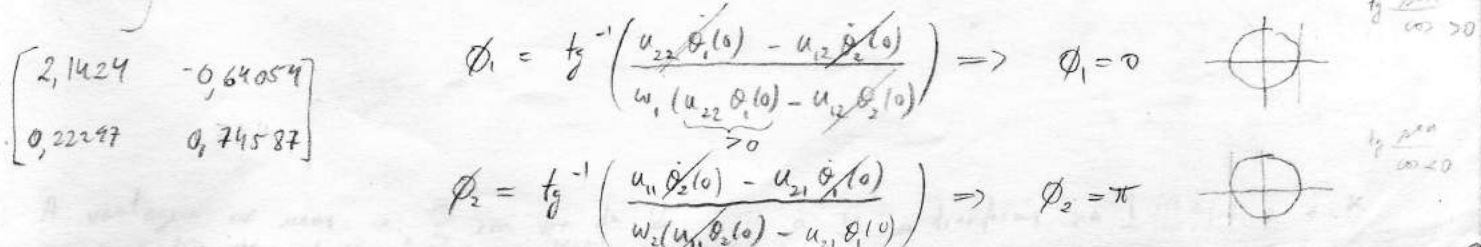 [2,1424 -0,64054
0,22297 0,74587]
ϕ₁ = tg⁻¹( (u₂₂ θ̇₁(0) - u₁₂ θ̇₂(0)) / (w₁(u₂₂ θ₁(0) - u₁₂ θ₂(0))) ) => ϕ₁ = 0
>0
ϕ₂ = tg⁻¹( (u₁₁ θ̇₂(0) - u₂₁ θ̇₁(0)) / (w₂(u₁₁ θ₂(0) - u₂₁ θ₁(0))) ) => ϕ₂ = π
tg sen / cos >0
tg sen / cos <0